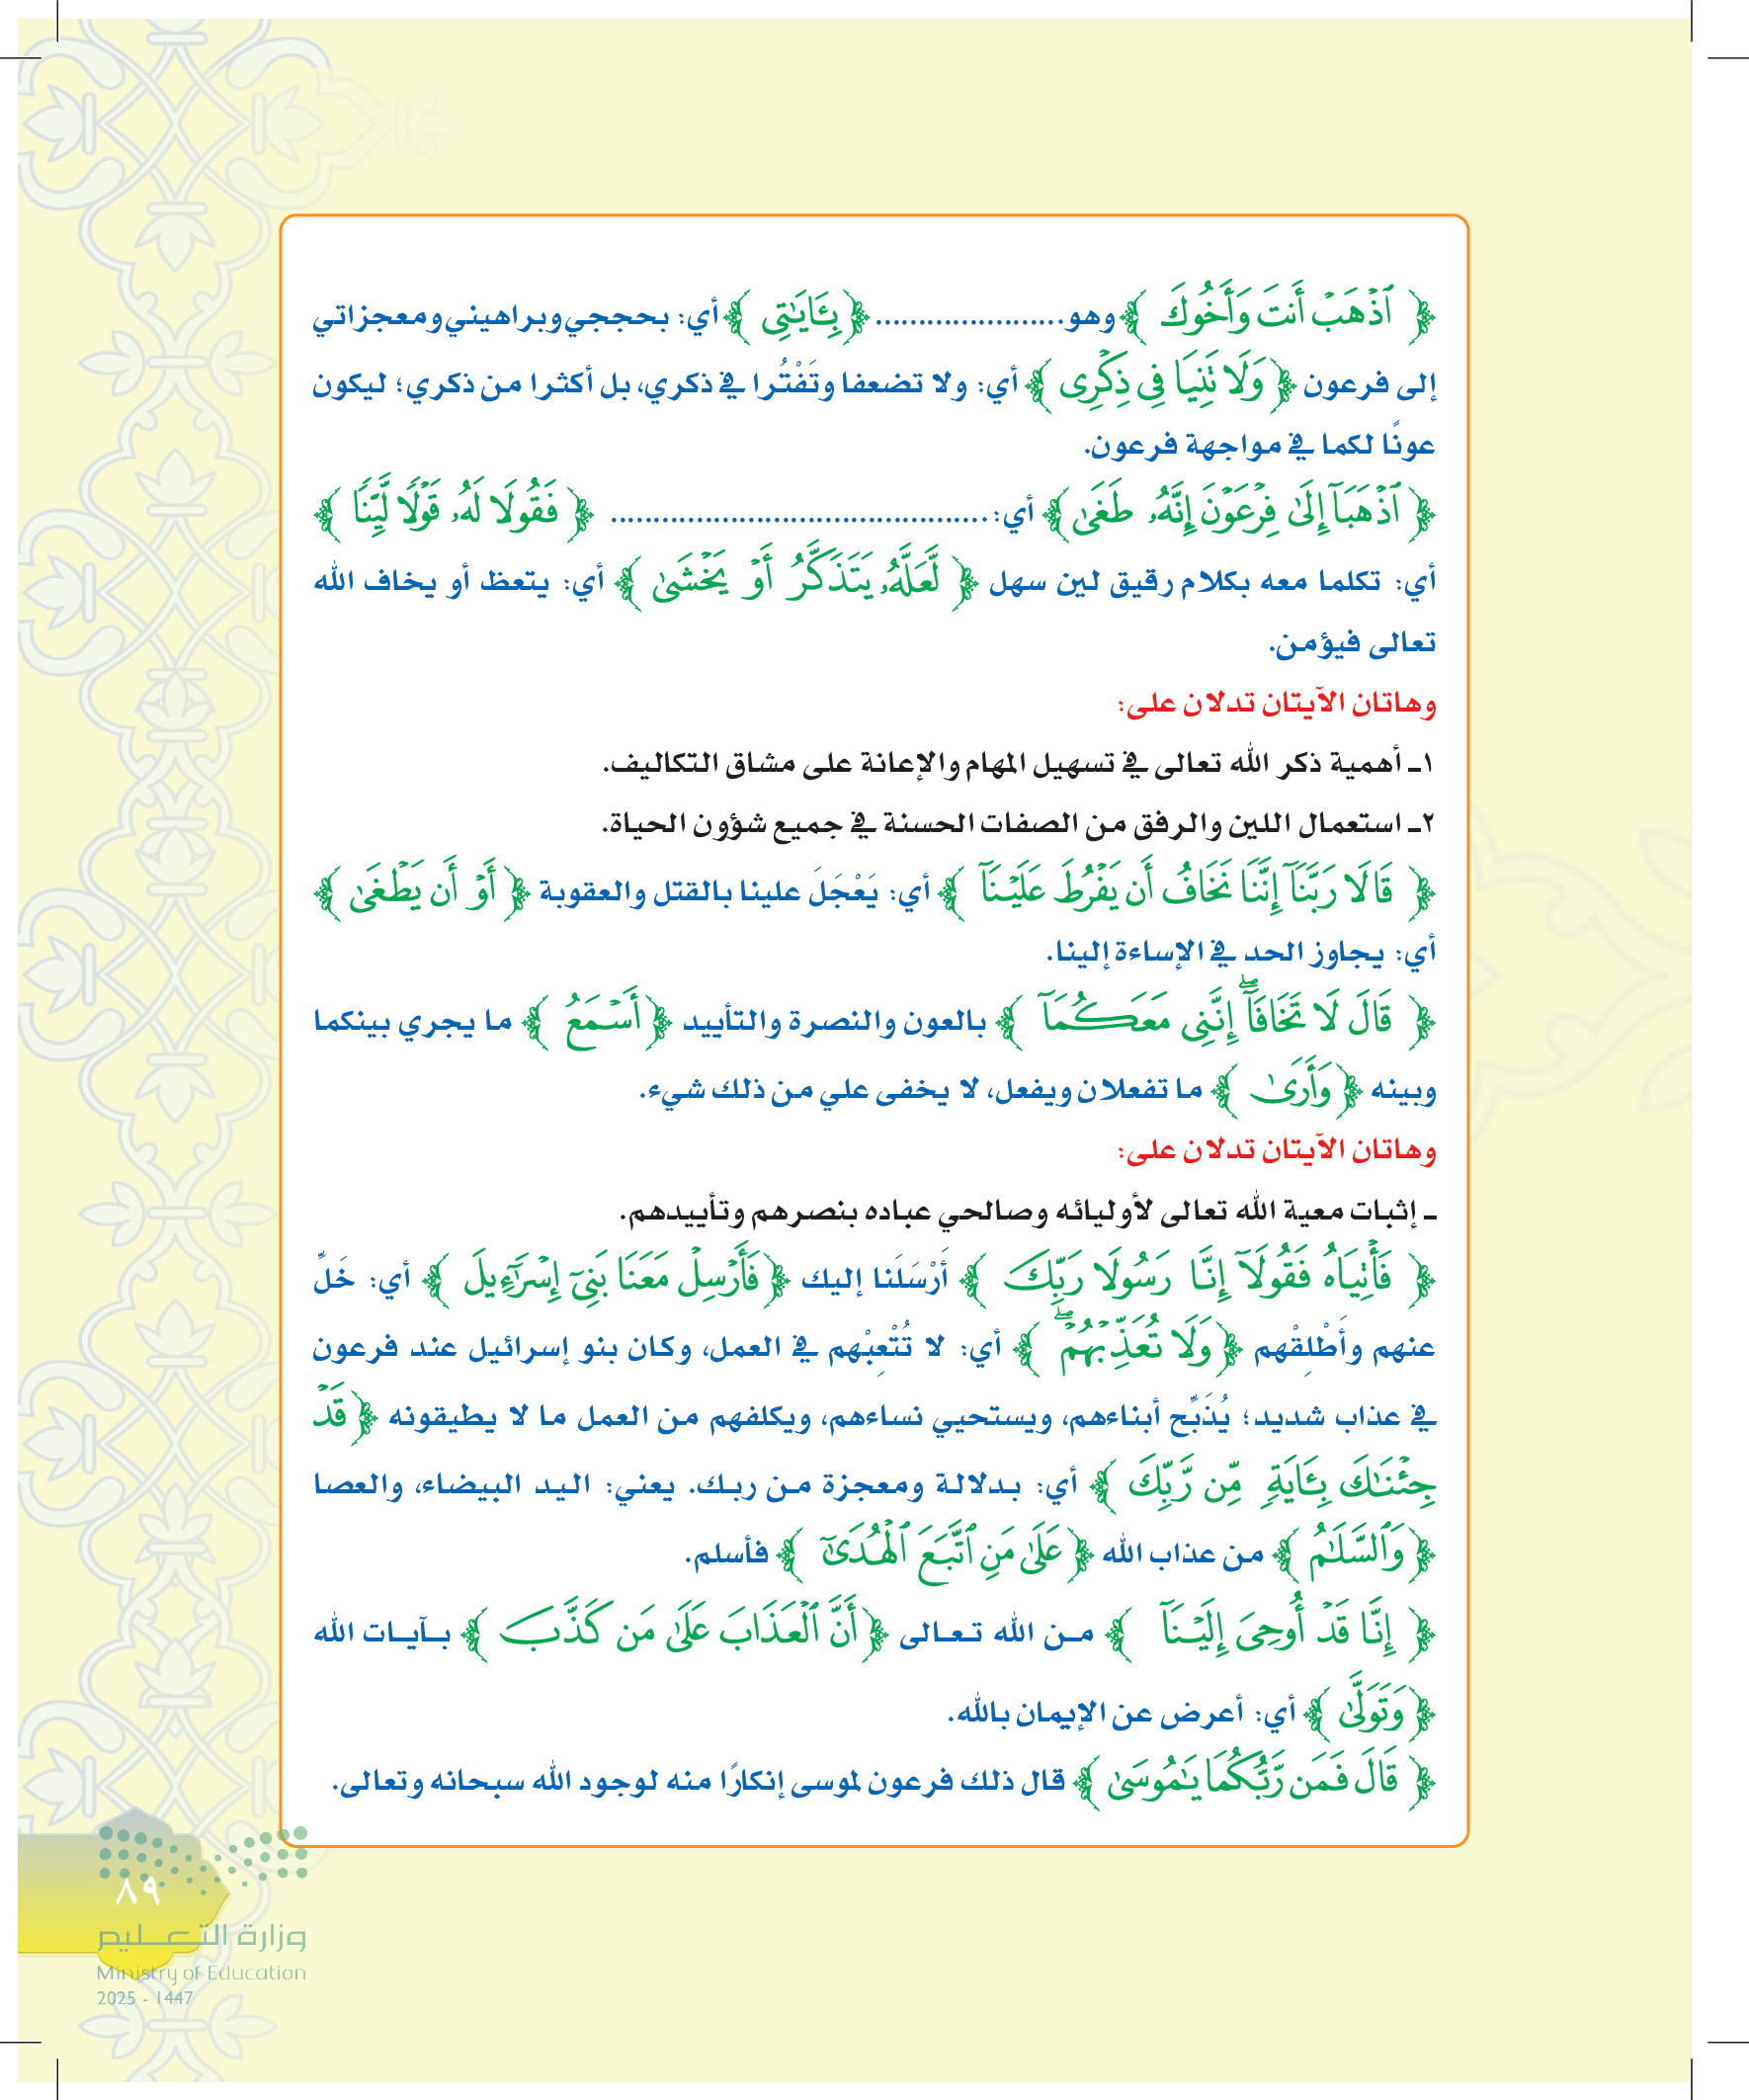 ﴿ ٱذۡهَبۡ أَنتَ وَأَخُوكَ ﴾ وهو...................... ﴿ بِـَٔايَٰتِي ﴾ أي: بحججي وبراهيني ومعجزاتي
إلى فرعون ﴿ وَلَا تَنِيَا فِي ذِكۡرِي ﴾ أي: ولا تضعفا وتَفْتُرا في ذكري، بل أكثرا من ذكري؛ ليكون
عونًا لكما في مواجهة فرعون.
﴿ ٱذۡهَبَآ إِلَىٰ فِرۡعَوۡنَ إِنَّهُۥ طَغَىٰ ﴾ أي:.......................................... ﴿ فَقُولَا لَهُۥ قَوۡلٗا لَّيِّنٗا ﴾
أي: تكلما معه بكلام رقيق لين سهل ﴿ لَّعَلَّهُۥ يَتَذَكَّرُ أَوۡ يَخۡشَىٰ ﴾ أي: يتعظ أو يخاف الله
تعالى فيؤمن.
وهاتان الآيتان تدلان على:
١ـ أهمية ذكر الله تعالى في تسهيل المهام والإعانة على مشاق التكاليف.
٢ـ استعمال اللين والرفق من الصفات الحسنة في جميع شؤون الحياة.
﴿ قَالَا رَبَّنَآ إِنَّنَا نَخَافُ أَن يَفۡرُطَ عَلَيۡنَآ ﴾ أي: يَعْجَلَ علينا بالقتل والعقوبة ﴿ أَوۡ أَن يَطۡغَىٰ ﴾
أي: يجاوز الحد في الإساءة إلينا.
﴿ قَالَ لَا تَخَافَآۖ إِنَّنِي مَعَكُمَآ ﴾ بالعون والنصرة والتأييد ﴿ أَسۡمَعُ ﴾ ما يجري بينكما
وبينه ﴿ وَأَرَىٰ ﴾ ما تفعلان ويفعل، لا يخفى علي من ذلك شيء.
وهاتان الآيتان تدلان على:
ـ إثبات معية الله تعالى لأوليائه وصالحي عباده بنصرهم وتأييدهم.
﴿ فَأۡتِيَاهُ فَقُولَآ إِنَّا رَسُولَا رَبِّكَ ﴾ أَرْسَلَنا إليك ﴿ فَأَرۡسِلۡ مَعَنَا بَنِيٓ إِسۡرَٰٓءِيلَ ﴾ أي: خَلِّ
عنهم وأَطْلِقْهم ﴿ وَلَا تُعَذِّبۡهُمۡۖ ﴾ أي: لا تُتْعِبْهم في العمل، وكان بنو إسرائيل عند فرعون
في عذاب شديد؛ يُذَبِّح أبناءهم، ويستحيي نساءهم، ويكلفهم من العمل ما لا يطيقونه ﴿ قَدۡ
جِئۡنَٰكَ بِـَٔايَةٖ مِّن رَّبِّكَ ﴾ أي: بدلالة ومعجزة من ربك. يعني: اليد البيضاء، والعصا
﴿ وَٱلسَّلَٰمُ ﴾ من عذاب الله ﴿ عَلَىٰ مَنِ ٱتَّبَعَ ٱلۡهُدَىٰٓ ﴾ فأسلم.
﴿ إِنَّا قَدۡ أُوحِيَ إِلَيۡنَآ ﴾ من الله تعالى ﴿ أَنَّ ٱلۡعَذَابَ عَلَىٰ مَن كَذَّبَ ﴾ بآيات الله
﴿ وَتَوَلَّىٰ ﴾ أي: أعرض عن الإيمان بالله.
﴿ قَالَ فَمَن رَّبُّكُمَا يَٰمُوسَىٰ ﴾ قال ذلك فرعون لموسى إنكارًا منه لوجود الله سبحانه وتعالى.
٨٩
وزارة التعليم
Ministry of Education
2025 - 1447